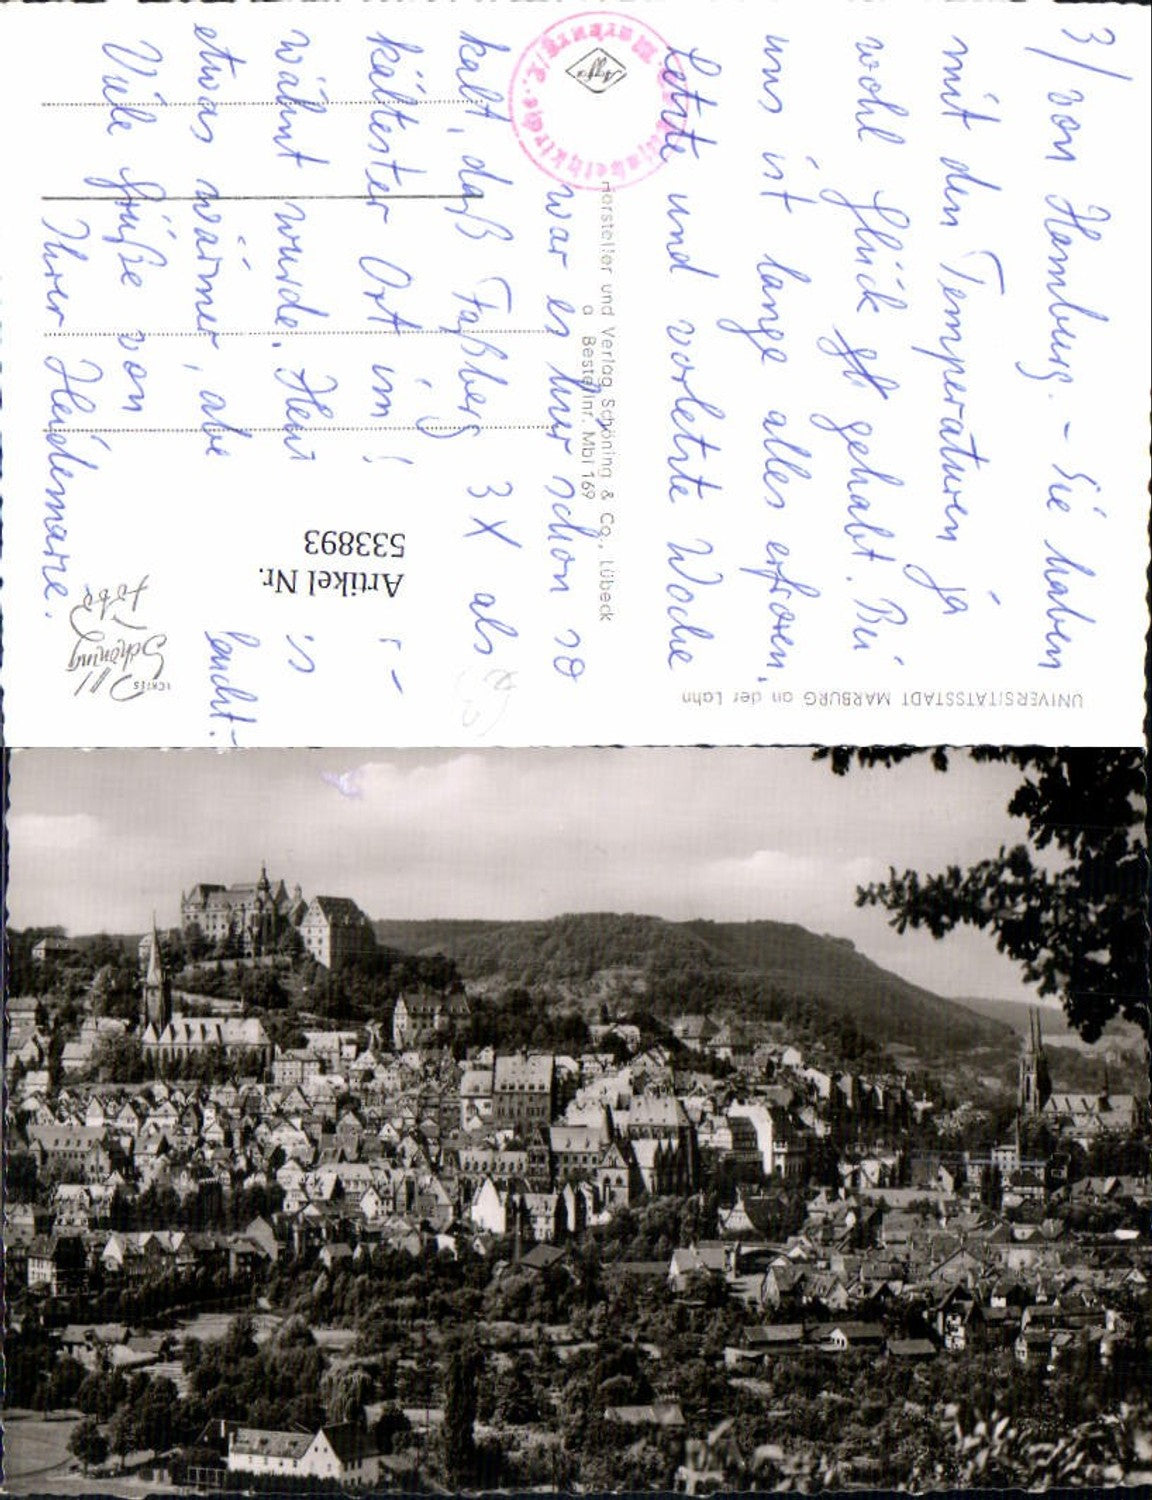 3/ von Hamburg. – Sie haben
mit den Temperaturen ja
wohl Glück gehabt. Bei
uns ist lange alles erfroren.
Letzte und vorletzte Woche
war es hier schon so
kalt, daß Faßberg 3 X als
kältester Ort im
wähnt wurde. Heut is
etwas wärmer, abe feucht.–
Viele Grüße von
Ihrer Heidemarie.
UNIVERSITÄTSSTADT MARBURG an der Lahn
Hersteller und Verlag Schöning & Co., Lübeck
Bestellnr. Mbl 169
Agfa
Elisabethkirche Marburg/L.
Artikel Nr.
533893
ECHTES
Schöning
Foto